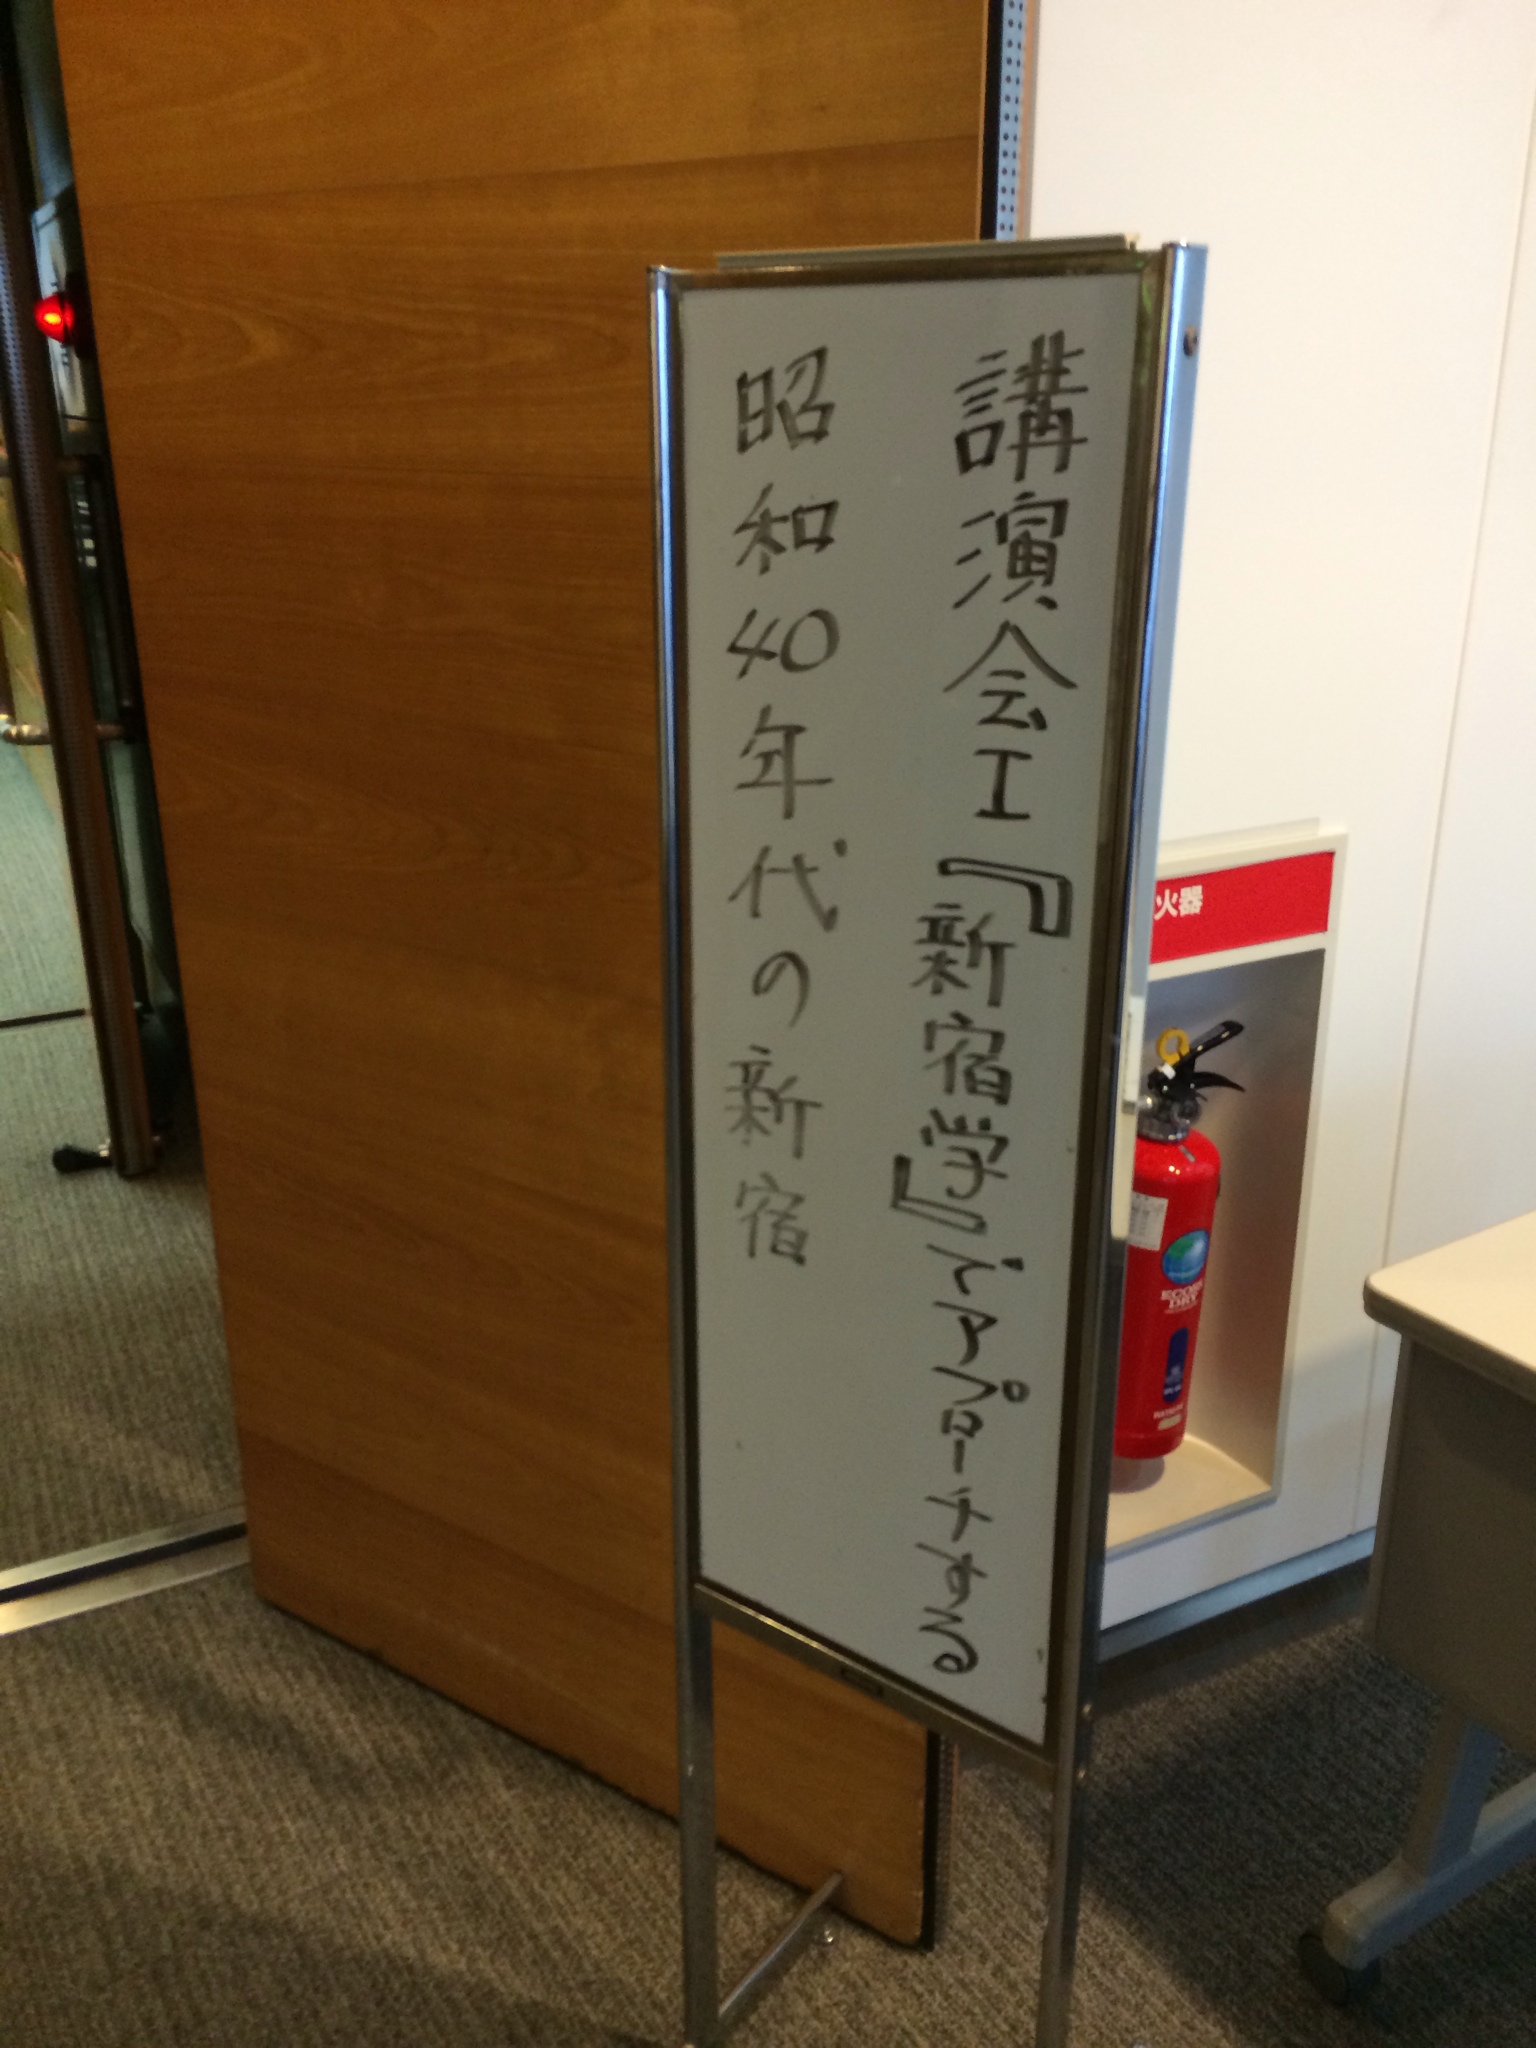 講演会I『新宿学』でアプローチする
昭和40年代の新宿
火器
ECOSS
DRY